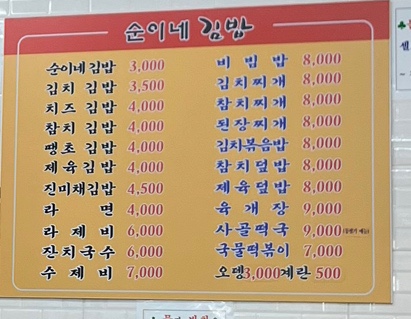 순이네 김밥
순이네김밥 3,000
김치 김밥 3,500
치즈 김밥 4,000
참치 김밥 4,000
땡초 김밥 4,000
제육김밥 4,000
진미채김밥 4,500
라 면 4,000
라 제 비 6,000
잔치국수 6,000
수 제 비 7,000
비 빔 밥 8,000
김치찌개 8,000
참치찌개 8,000
된장찌개 8,000
김치볶음밥 8,000
참치덮밥 8,000
제육덮밥 8,000
육 개 장 9,000
사골떡국 9,000
국물떡볶이 7,000
오뎅3,000계란 500